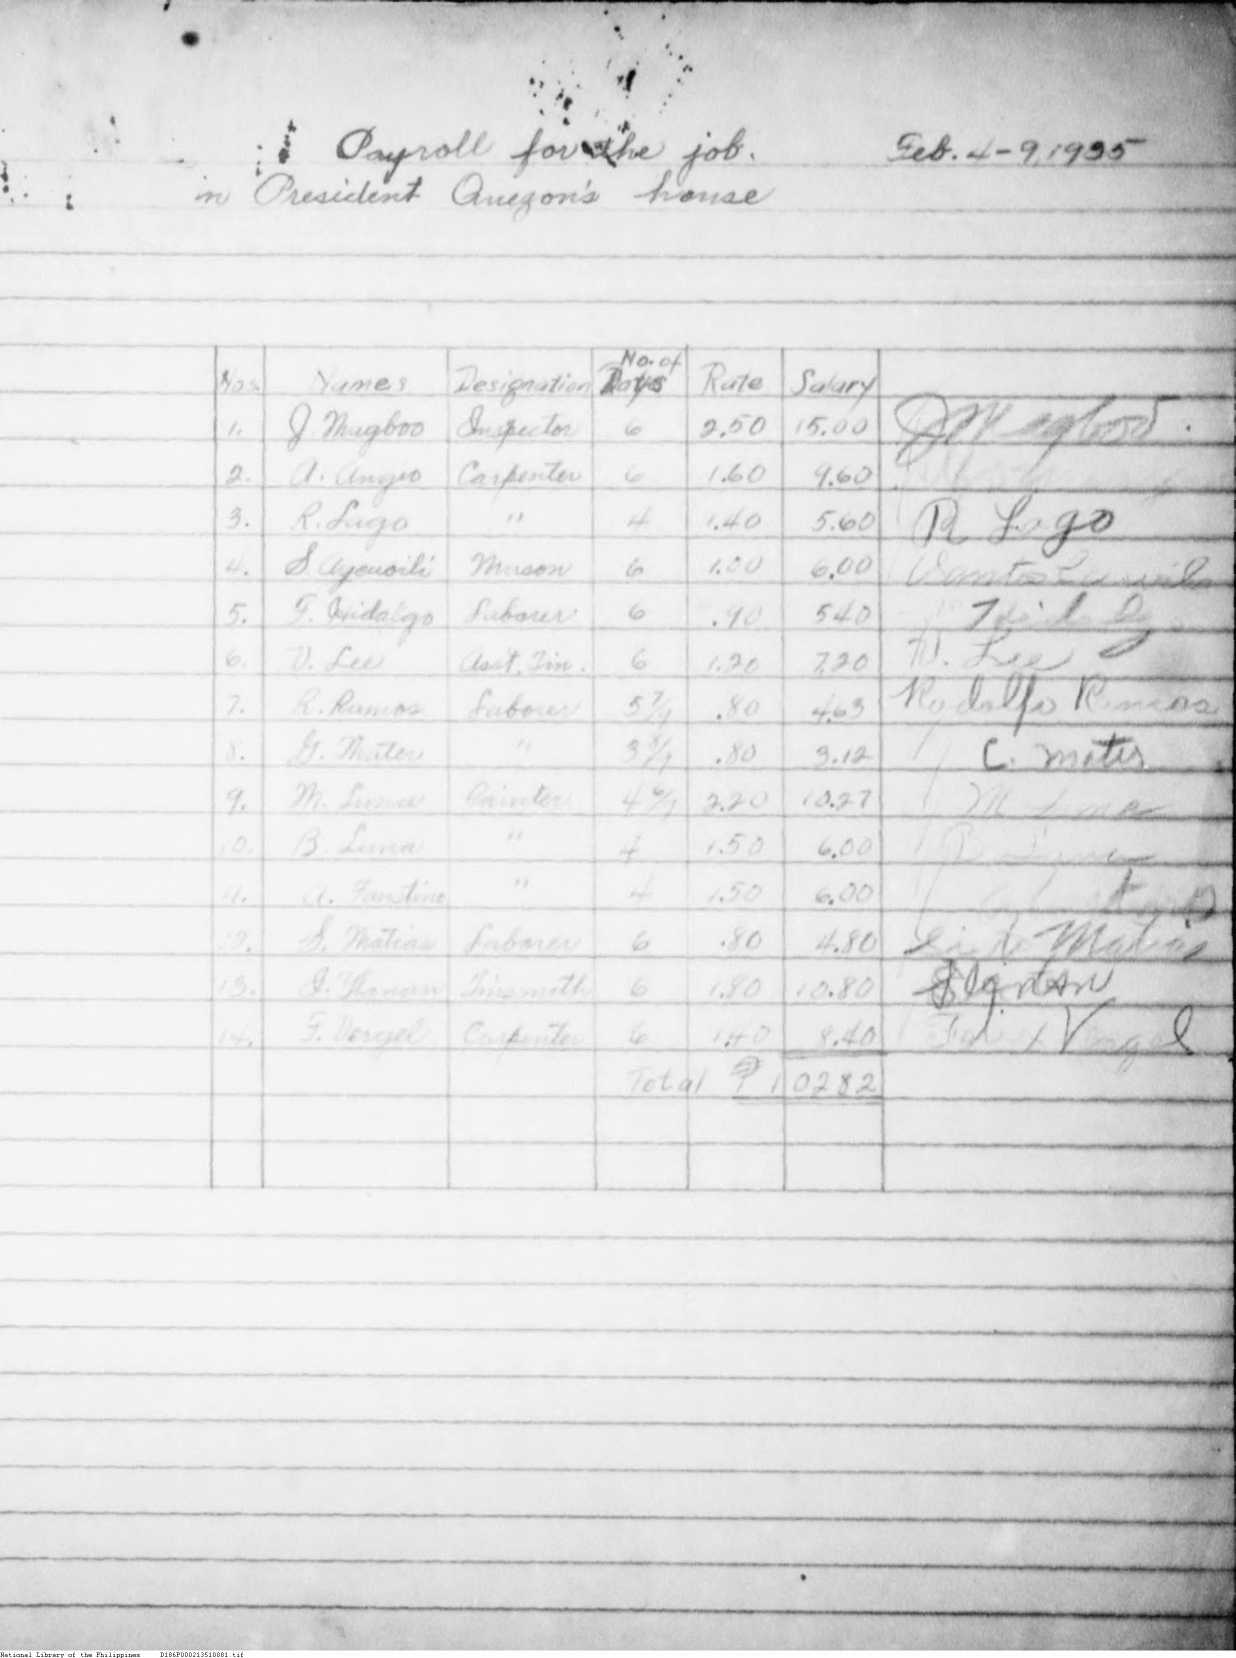 Payroll for the job. Feb. 4-9, 1935
in President Quezon's house
Nos. Names Designation No. of Days Rate Salary
1. J. Magboo Inspector 6 2.50 15.00 J Magboo
2. A. Angio Carpenter 6 1.60 9.60
3. R. Lugo " 4 1.40 5.60 R Lugo
4. S. Mason 6 1.00 6.00 Santos
5. F. Hidalgo Laborer 6 .90 540
6. V. Lee Asst. Tin. 6 1.20 7.20 V. Lee
7. R. Ramos Laborer 5 7/9 .80 4.63 Rodolfo Ramos
8. G. Mater " 3 .80 3.12 C. mater
9. M. Luna Painter 4 6/9 2.20 10.27 M Luna
10. B. Luna " 4 1.50 6.00 B Luna
11. A. Faustino " 4 1.50 6.00
12. S. Matias Laborer 6 .80 4.80 Matias
13. Tinsmith 6 1.80 10.80
14. F. Vergel Carpenter 6 1.40 8.40 Vergel
Total ₱ 10282
National Library of the Philippines D186P000213510081.tif